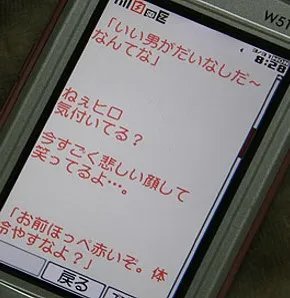 W51
3/31
8:28
「いい男がだいなしだ~
なんてな」
ねぇヒロ
気付いてる?
今すごく悲しい顔して
笑ってるよ…。
「お前ほっぺ赤いぞ。体
冷やすなよ?」
戻る